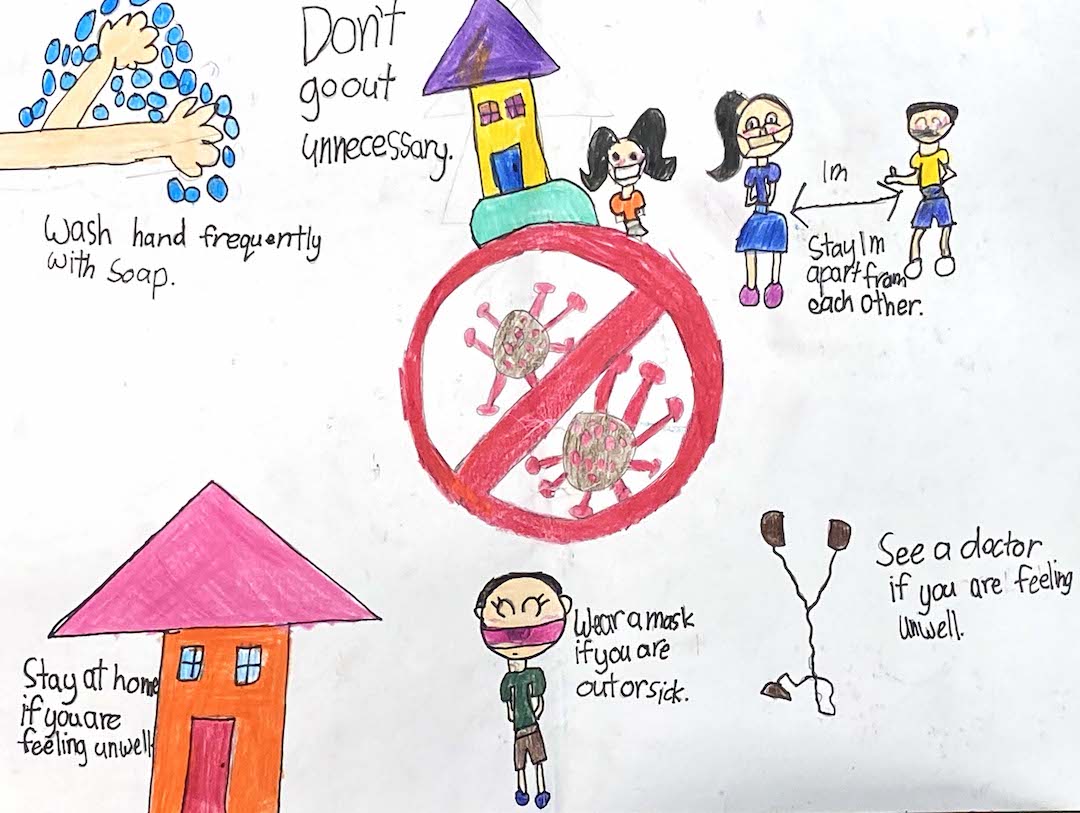 Don't
go out
unnecessary.
Wash hand frequently
with soap.
1m
Stay 1m
apart from
each other.
Stay at home
if you are
feeling unwell
Wear a mask
if you are
out or sick.
See a doctor
if you are feeling
unwell.